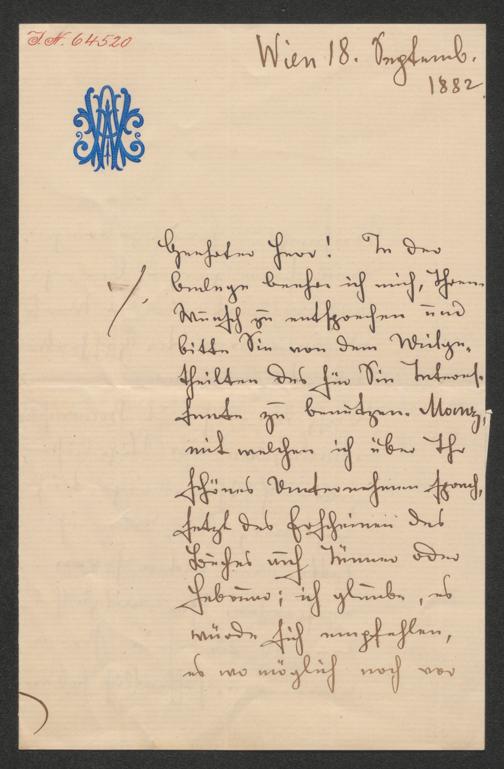 J.N. 64520
Wien 18. Septemb.
1882.
Geehrter Herr! In der
Beilage beehre ich mich, Ihrem
Wunsch zu entsprechen und
bitte Sie von dem Mitge-
theilten das für Sie Interes-
sante zu benützen.
mit welchen ich über Ihr
schönes Unternehmen sprach,
setzt das Erscheinen des
Buches auf Jänner oder
Februar; ich glaube, es
würde sich empfehlen,
es wo möglich noch vor